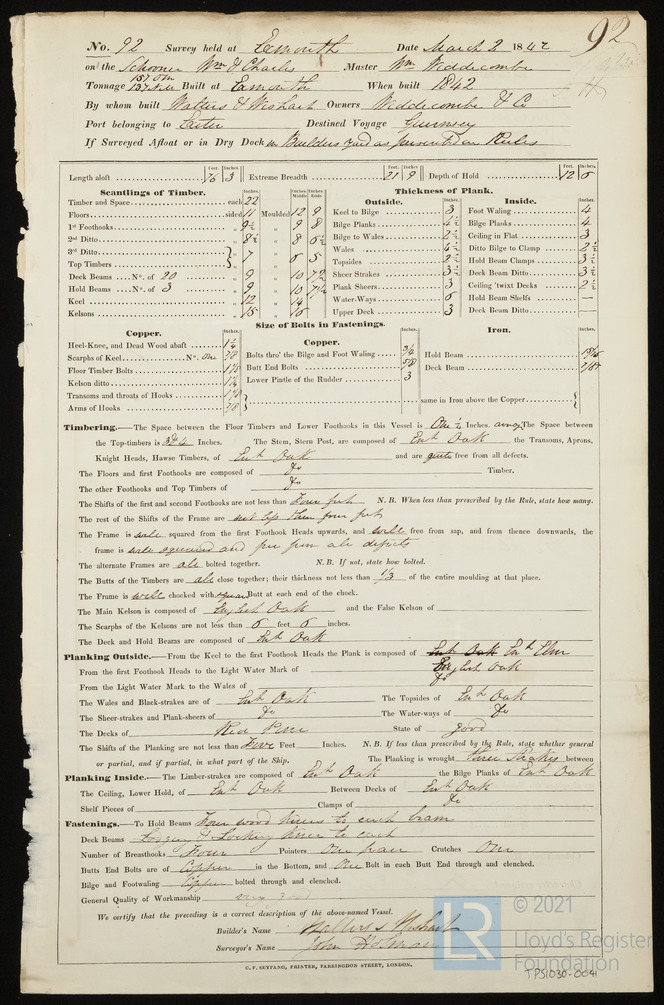 No. 92 Survey held at Exmouth Date March 2 1842
92
on the Schooner Wm & Charles Master Wm Weddecombe
Tonnage Built at Exmouth When built 1842
By whom built Walters & Wishart Owners Weddecombe & Co
Port belonging to Exeter Destined Voyage Guernsey
If Surveyed Afloat or in Dry Dock in Builders yard as presented in Rules
Length aloft 76 3 Extreme Breadth 21 9 Depth of Hold 12 6
Scantlings of Timber.
Timber and Space each 22
Floors sided 11 Moulded 12 9
1st Foothooks 9½ 9 8
2nd Ditto 8½ 8 6½
3rd Ditto
Top Timbers 7 6 5
Deck Beams No. of 20 9 10 7½
Hold Beams No. of 3 9 10 7½
Keel 12 14
Kelsons 15 16
Thickness of Plank.
Outside.
Keel to Bilge 3
Bilge Planks 4½
Bilge to Wales 2½
Wales 4½
Topsides 2½
Sheer Strakes 3½
Plank Sheers 3
Water-Ways 6
Upper Deck 3
Inside.
Foot Waling 4
Bilge Planks 4
Ceiling in Flat 3
Ditto Bilge to Clamp 2½
Hold Beam Clamps 3½
Deck Beam Ditto 3½
Ceiling 'twixt Decks 2½
Hold Beam Shelfs —
Deck Beam Ditto —
Size of Bolts in Fastenings.
Copper.
Heel-Knee, and Dead Wood abaft 1¼
Scarphs of Keel No. One 7/8
Floor Timber Bolts
Kelson ditto
Transoms and throats of Hooks
Arms of Hooks
Copper.
Bolts thro' the Bilge and Foot Waling 3/4
Butt End Bolts 5/8
Lower Pintle of the Rudder 3
Iron.
Hold Beam
Deck Beam
same in Iron above the Copper
Timbering.—The Space between the Floor Timbers and Lower Foothooks in this Vessel is One ½ Inches. The Space between
the Top-timbers is Inches. The Stem, Stern Post, are composed of Eng Oak the Transoms, Aprons,
Knight Heads, Hawse Timbers, of Eng Oak and are quite free from all defects.
The Floors and first Foothooks are composed of Do Timber.
The other Foothooks and Top Timbers of Do
The Shifts of the first and second Foothooks are not less than Four feet N.B. When less than prescribed by the Rule, state how many.
The rest of the Shifts of the Frame are not less than four feet
The Frame is well squared from the first Foothook Heads upwards, and well free from sap, and from thence downwards, the
frame is well squared and free from all defects
The alternate Frames are all bolted together. N.B. If not, state how bolted.
The Butts of the Timbers are all close together; their thickness not less than 1/3 of the entire moulding at that place.
The Frame is well chocked with square Butt at each end of the chock.
The Main Kelson is composed of English Oak and the False Kelson of
The Scarphs of the Kelsons are not less than 6 feet 6 inches.
The Deck and Hold Beams are composed of Eng Oak
Planking Outside.—From the Keel to the first Foothook Heads the Plank is composed of Eng Oak Eng Elm
From the first Foothook Heads to the Light Water Mark of English Oak
From the Light Water Mark to the Wales of Do
The Wales and Black-strakes are of Eng Oak The Topsides of Eng Oak
The Sheer-strakes and Plank-sheers of Do The Water-ways of Do
The Decks of Red Pine State of good
The Shifts of the Planking are not less than Five Feet Inches. N.B. If less than prescribed by the Rule, state whether general
or partial, and if partial, in what part of the Ship. The Planking is wrought three Strakes between
Planking Inside.—The Limber-strakes are composed of Eng Oak the Bilge Planks of Eng Oak
The Ceiling, Lower Hold, of Eng Oak Between Decks of Eng Oak
Shelf Pieces of Clamps of Do
Fastenings.—To Hold Beams Four wood knees to each beam
Deck Beams Lodging & Locking knees to each
Number of Breasthooks Four Pointers One pair Crutches One
Butts End Bolts are of Copper in the Bottom, and One Bolt in each Butt End through and clenched.
Bilge and Footwaling Copper bolted through and clenched.
General Quality of Workmanship very good
We certify that the preceding is a correct description of the above-named Vessel.
Builder's Name Walters & Wishart
Surveyor's Name John Holman
C. F. SEYFANG, PRINTER, FARRINGDON STREET, LONDON.
LR
© 2021
Lloyd's Register
Foundation
TPS1030-0041